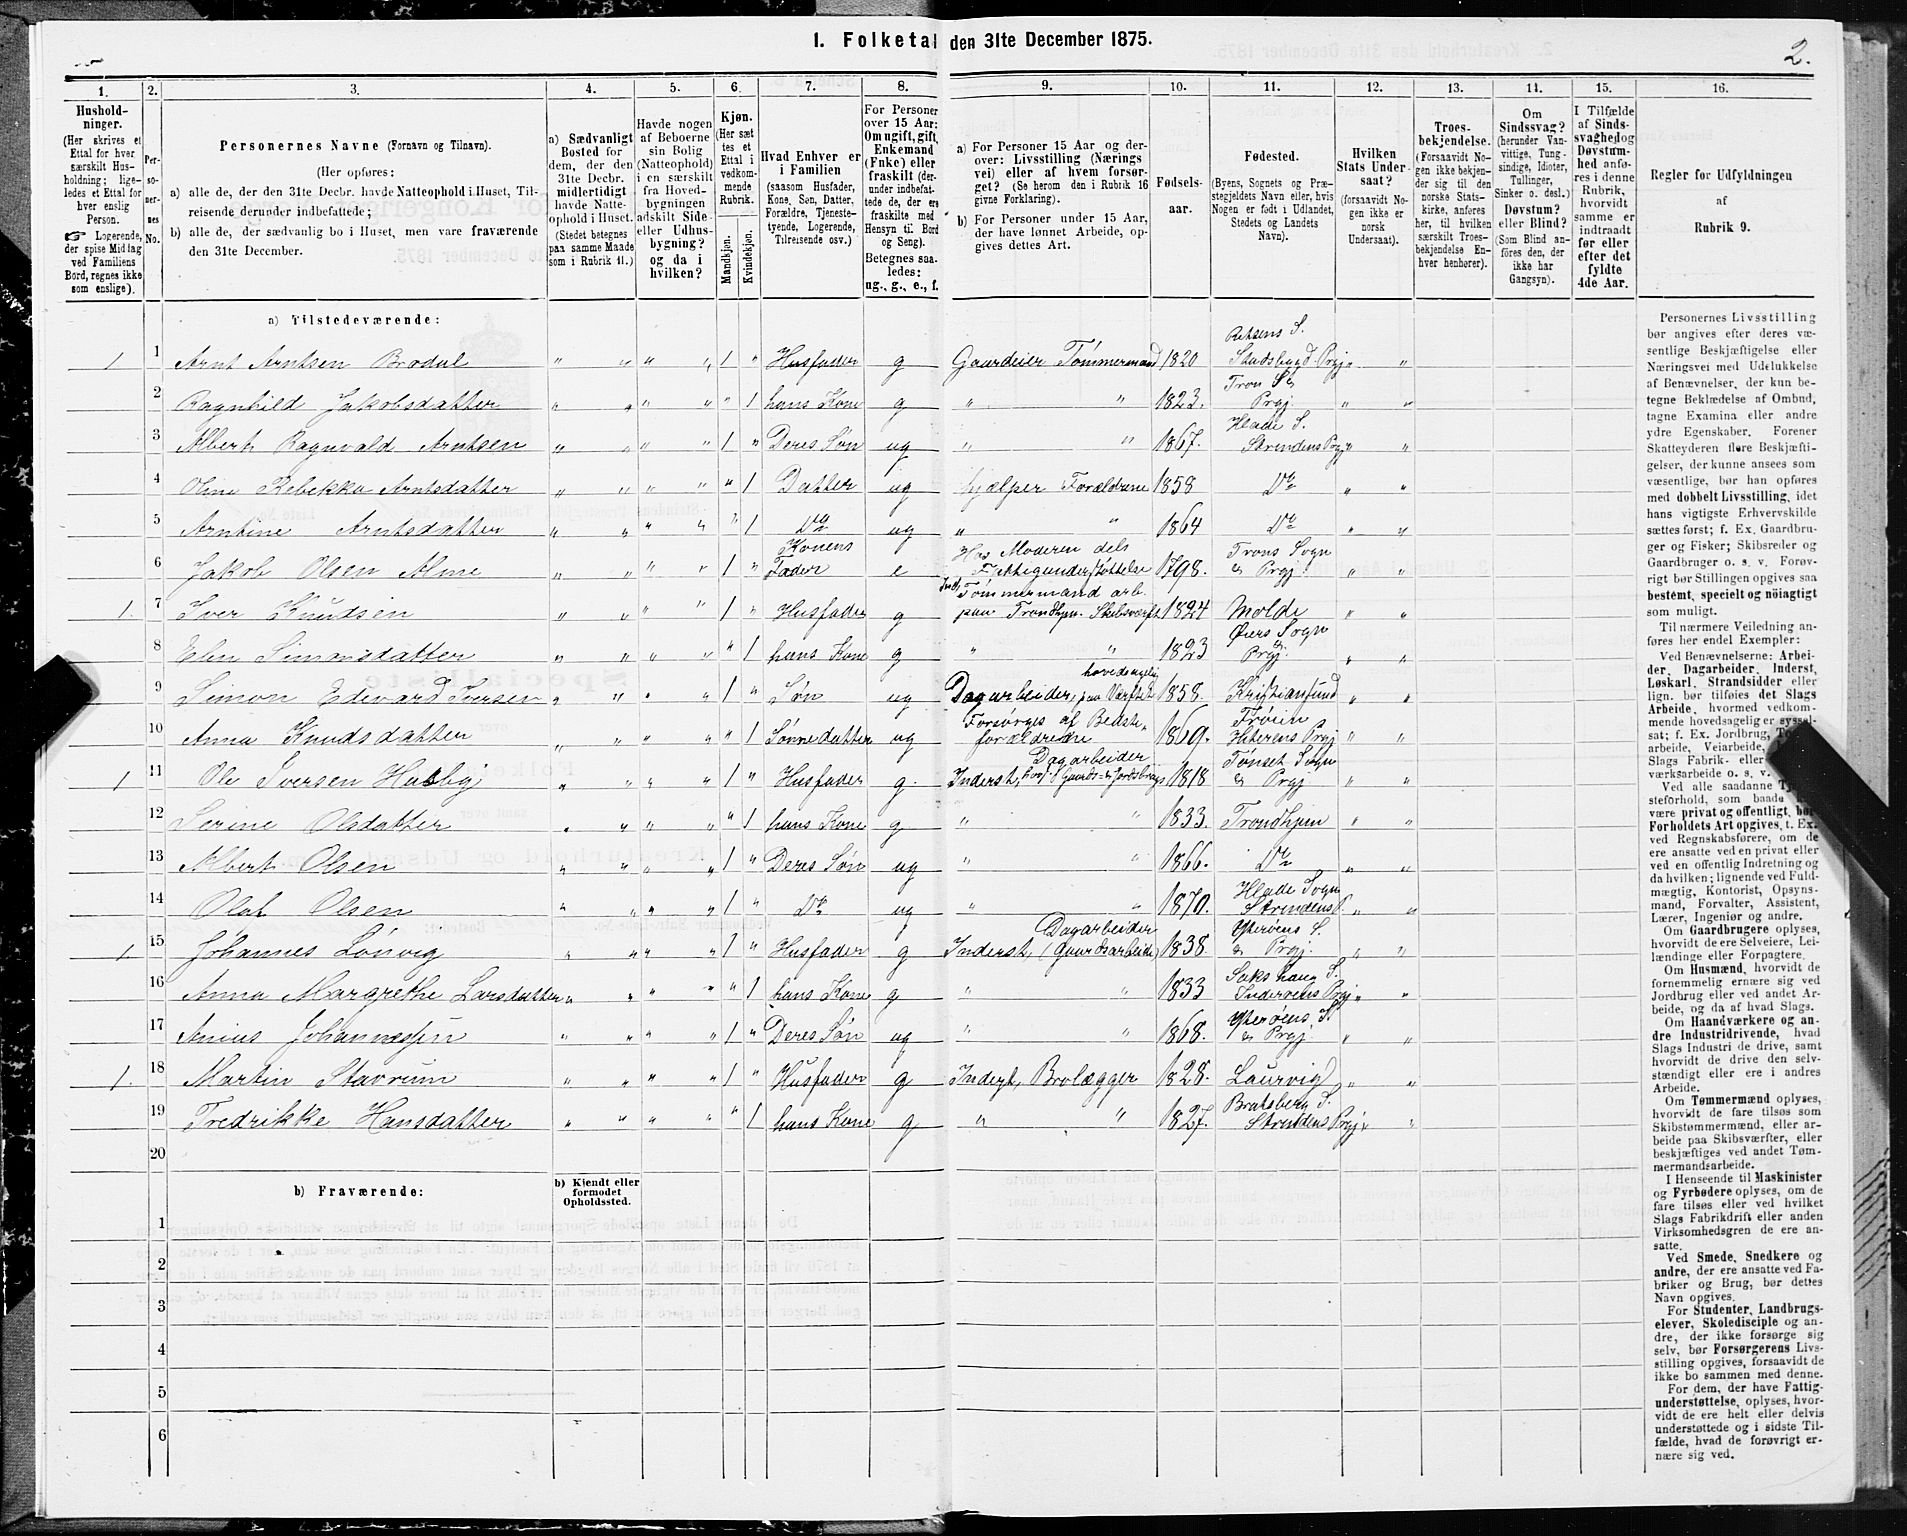 1. Folketal den 31te December 1875.
2.
1.
2.
3.
4.
5.
6.
7.
8.
9.
10.
11.
12.
13.
14.
15.
16.
Husholdninger.
(Her skrives et Ettal for hver særskilt Husholdning; ligeledes et Ettal for hver enslig Person.
☞ Logerende, der spise Middag ved Familiens Bord, regnes ikke som enslige).
Personernes No.
Personernes Navne (Fornavn og Tilnavn).
(Her opføres:
a) alle de, der den 31te Decbr. havde Natteophold i Huset, Tilreisende derunder indbefattede;
b) alle de, der sædvanlig bo i Huset, men vare fraværende den 31te December.
a) Sædvanligt Bosted for dem, der den 31te Decbr. midlertidigt havde Natteophold i Huset. (Stedet betegnes paa samme Maade som i Rubrik 11.)
Havde nogen af Beboerne sin Bolig (Natteophold) i en særskilt fra Hovedbygningen adskilt Side- eller Udhusbygning? og da i hvilken?
Kjøn.
(Her sættes et Ettal i vedkommende Rubrik.
Mandkjøn.
Kvindekjøn.
Hvad Enhver er i Familien
(saasom Husfader, Kone, Søn, Datter, Forældre, Tjenestetyende, Logerende, Tilreisende osv.)
For Personer over 15 Aar: Om ugift, gift, Enkemand (Enke) eller fraskilt (derunder indbefattede de, der ere fraskilte med Hensyn til Bord og Seng). Betegnes saaledes: ug., g., e., f.
a) For Personer 15 Aar og derover: Livsstilling (Næringsvei) eller af hvem forsørget? (Se herom den i Rubrik 16 givne Forklaring).
b) For Personer under 15 Aar, der have lønnet Arbeide, opgives dettes Art.
Fødselsaar.
Fødested.
(Byens, Sognets og Præstegjeldets Navn eller, hvis Nogen er født i Udlandet, Stedets og Landets Navn).
Hvilken Stats Undersaat?
(forsaavidt Nogen ikke er norsk Undersaat).
Troesbekjendelse.
(Forsaavidt Nogen ikke bekjender sig til den norske Statskirke, anføres her, til hvilken særskilt Troesbekjendelse Enhver henhører).
Om Sindssvag?
(herunder Vanvittige, Tungsindige, Idioter, Tullinger, Sinker o. desl.)
Døvstum? eller Blind?
(Som Blind anføres den, der ikke har Gangsyn).
I Tilfælde af Sindssvaghed og Døvstumhed anføres i denne Rubrik, hvorvidt samme er indtraadt før eller efter det fyldte 4de Aar.
Regler for Udfyldningen af Rubrik 9.
a) Tilstedeværende:
1 1 Arnt Arntsen Brodal " " " " 1 " Husfader g Gaardeier Tømmermand 1820 Rissens S. Stadsbygd Prgj " "
2 Ragnhild Jakobsdatter " " " " " 1 hans Kone g " " 1823. Tron S & Prgj. " "
3 Albert Ragnvald Arntsen " " " " 1 " Deres Søn ug " " 1867. Hlade S. Strindens Prgj " "
4 Oline Rebekka Arntsdatter " " " " " 1 Datter ug hjælper Forældrene 1858 Do " "
5 Arntine Arntsdatter " " " " " 1 Do ug " " 1864 Do " "
6 Jakob Olsen Alme " " " " 1 " Konens Fader e Hos Moderen dels Fattigunderstøttelse 1798. Trons Sogn & Prgj. " "
1. 7 Iver Knudsen " " " " 1 " Husfader g Ind. Tømmermand arb. paa Trondhjm. Skibsværft 1824 Molde " "
8 Elen Simonsdatter " " " " " 1 hans Kone g " " 1823 Øiers Sogn & Prgj. " "
9 Simon Edevard Iversen " " " " 1 " Søn ug Dagarbeider, hovedsagelig paa Værftet 1858. Kristiansund " "
10 Anna Knudsdatter " " " " " 1 Sønnedatter ug Forsørges af Bedsteforældrene 1869. Frøien Hiterens Prgj " "
1 11 Ole Iversen Husby " " " " 1 " Husfader g. Inderst, Dagarbeider hvs. Gaards- & Jordsbrug 1818 Tønset Sogn & Prgj " "
12 Serine Olsdatter " " " " " 1 hans Kone g " " 1833. Trondhjem " "
13 Albert Olsen " " " " 1 " Deres Søn ug " " 1866. Do " "
14 Olaf Olsen " " " " 1 " Do ug " " 1870. Hlade Sogn Strindens P. " "
1 15 Johannes Lønvig " " " " 1 " Husfader g Inderst, Dagarbeider (Gaardsarbeide) 1838. Ytterøens S. & Prgj. " "
16 Anna Margrethe Larsdatter " " " " " 1 hans Kone g " " 1833 Sakshaug S. Inderøens Prgj " "
17 Anius Johannessen " " " " 1 " Deres Søn ug " " 1868. Ytterøens S. & Prgj. " "
1. 18 Martin Stavrum " " " " 1 " Husfader g Inderst, Brolægger 1828. Laurvig " "
19 Fredrikke Hansdatter " " " " " 1 hans Kone g " " 1827. Bratsberg S. Strindens Prgj. " "
20
b) Fraværende:
b) Kjendt eller formodet Opholdssted.
1
2
3
4
5
6
Personernes Livsstilling
bør angives efter deres væ-
sentlige Beskjæftigelse eller
Næringsvei med Udelukkelse
af Benævnelser, der kun be-
tegne Beklædelse af Ombud,
tagne Examina eller andre
ydre Egenskaber. Forener
Skatteyderen flere Beskjæfti-
gelser, der kunne ansees som
væsentlige, bør han opføres
med dobbelt Livsstilling, idet
hans vigtigste Erhvervskilde
sættes først; f. Ex. Gaardbru-
ger og Fisker; Skibsreder og
Gaardbruger o. s. v. Forøv-
rigt bør Stillingen opgives saa
bestemt, specielt og nøiagtigt
som muligt.
Til nærmere Veiledning an-
føres her endel Exempler:
Ved Benævnelserne: Arbei-
der, Dagarbeider, Inderst,
Løskarl, Strandsidder eller
lign. bør tilføies det Slags
Arbeide, hvormed vedkom-
mende hovedsagelig er syssel-
sat; f. Ex. Jordbrug,
arbeide, Veiarbeide,
Slags Fabrik- eller
værksarbeide o. s. v.
Ved alle saadanne
steforhold, som baade
være privat og offentlig, bør
Forholdets Art opgives, t. Ex.
ved Regnskabsførere, om de
ere ansatte ved en privat eller
ved en offentlig Indretning og
da hvilken; lignende ved Fuld-
mægtig, Kontorist, Opsyns-
mand, Forvalter, Assistent,
Lærer, Ingeniør og andre.
Om Gaardbrugere oplyses,
hvorvidt de ere Selveiere, Lei-
lændinge eller Forpagtere.
Om Husmænd, hvorvidt de
fornemmelig ernære sig ved
Jordbrug eller ved andet Ar-
beide, og da af hvad Slags.
Om Haandværkere og an-
dre Industridrivende, hvad
Slags Industri de drive, samt
hvorvidt de drive den selv-
stændigt eller ere i andres
Arbeide.
Om Tømmermænd oplyses,
hvorvidt de fare tilsøs som
Skibstømmermænd, eller ar-
beide paa Skibsværfter, eller
beskjæftiges ved andet Tøm-
mermandsarbeide.
I Henseende til Maskinister
og Fyrbødere oplyses, om de
fare tilsøs eller ved hvilket
Slags Fabrikdrift eller anden
Virksomhedsgren de ere an-
satte.
Ved Smede, Snedkere og
andre, der ere ansatte ved Fa-
briker og Brug, bør dettes
Navn opgives.
For Studenter, Landbrugs-
elever, Skoledisciple og an-
dre, der ikke forsørge sig
selv, bør Forsørgerens Livs-
stilling opgives, forsaavidt de
ikke bo sammen med denne.
For dem, der have Fattig-
understøttelse, oplyses, hvor-
vidt de ere helt eller delvis
understøttede og i sidste Til-
fælde, hvad de forøvrigt er-
nære sig ved.